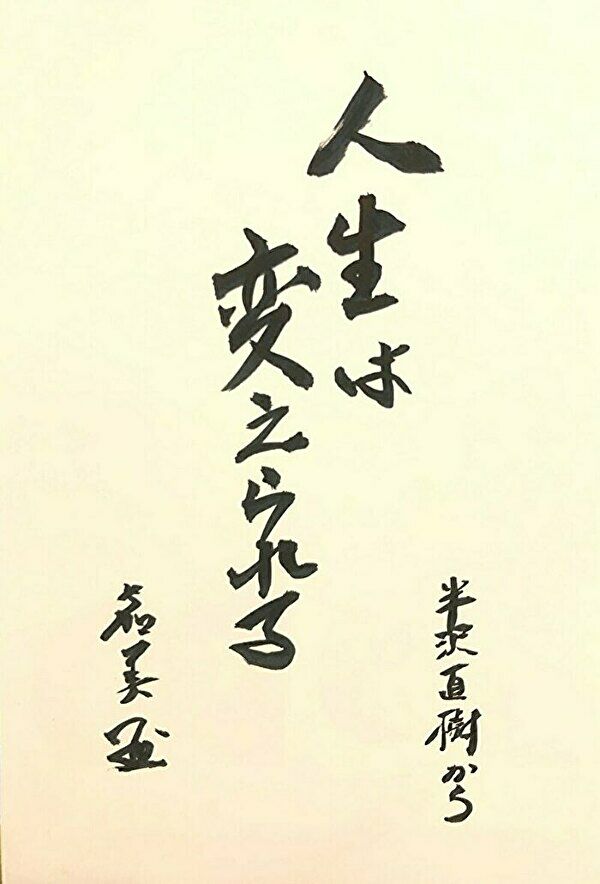 人生は
変えられる
半沢直樹から